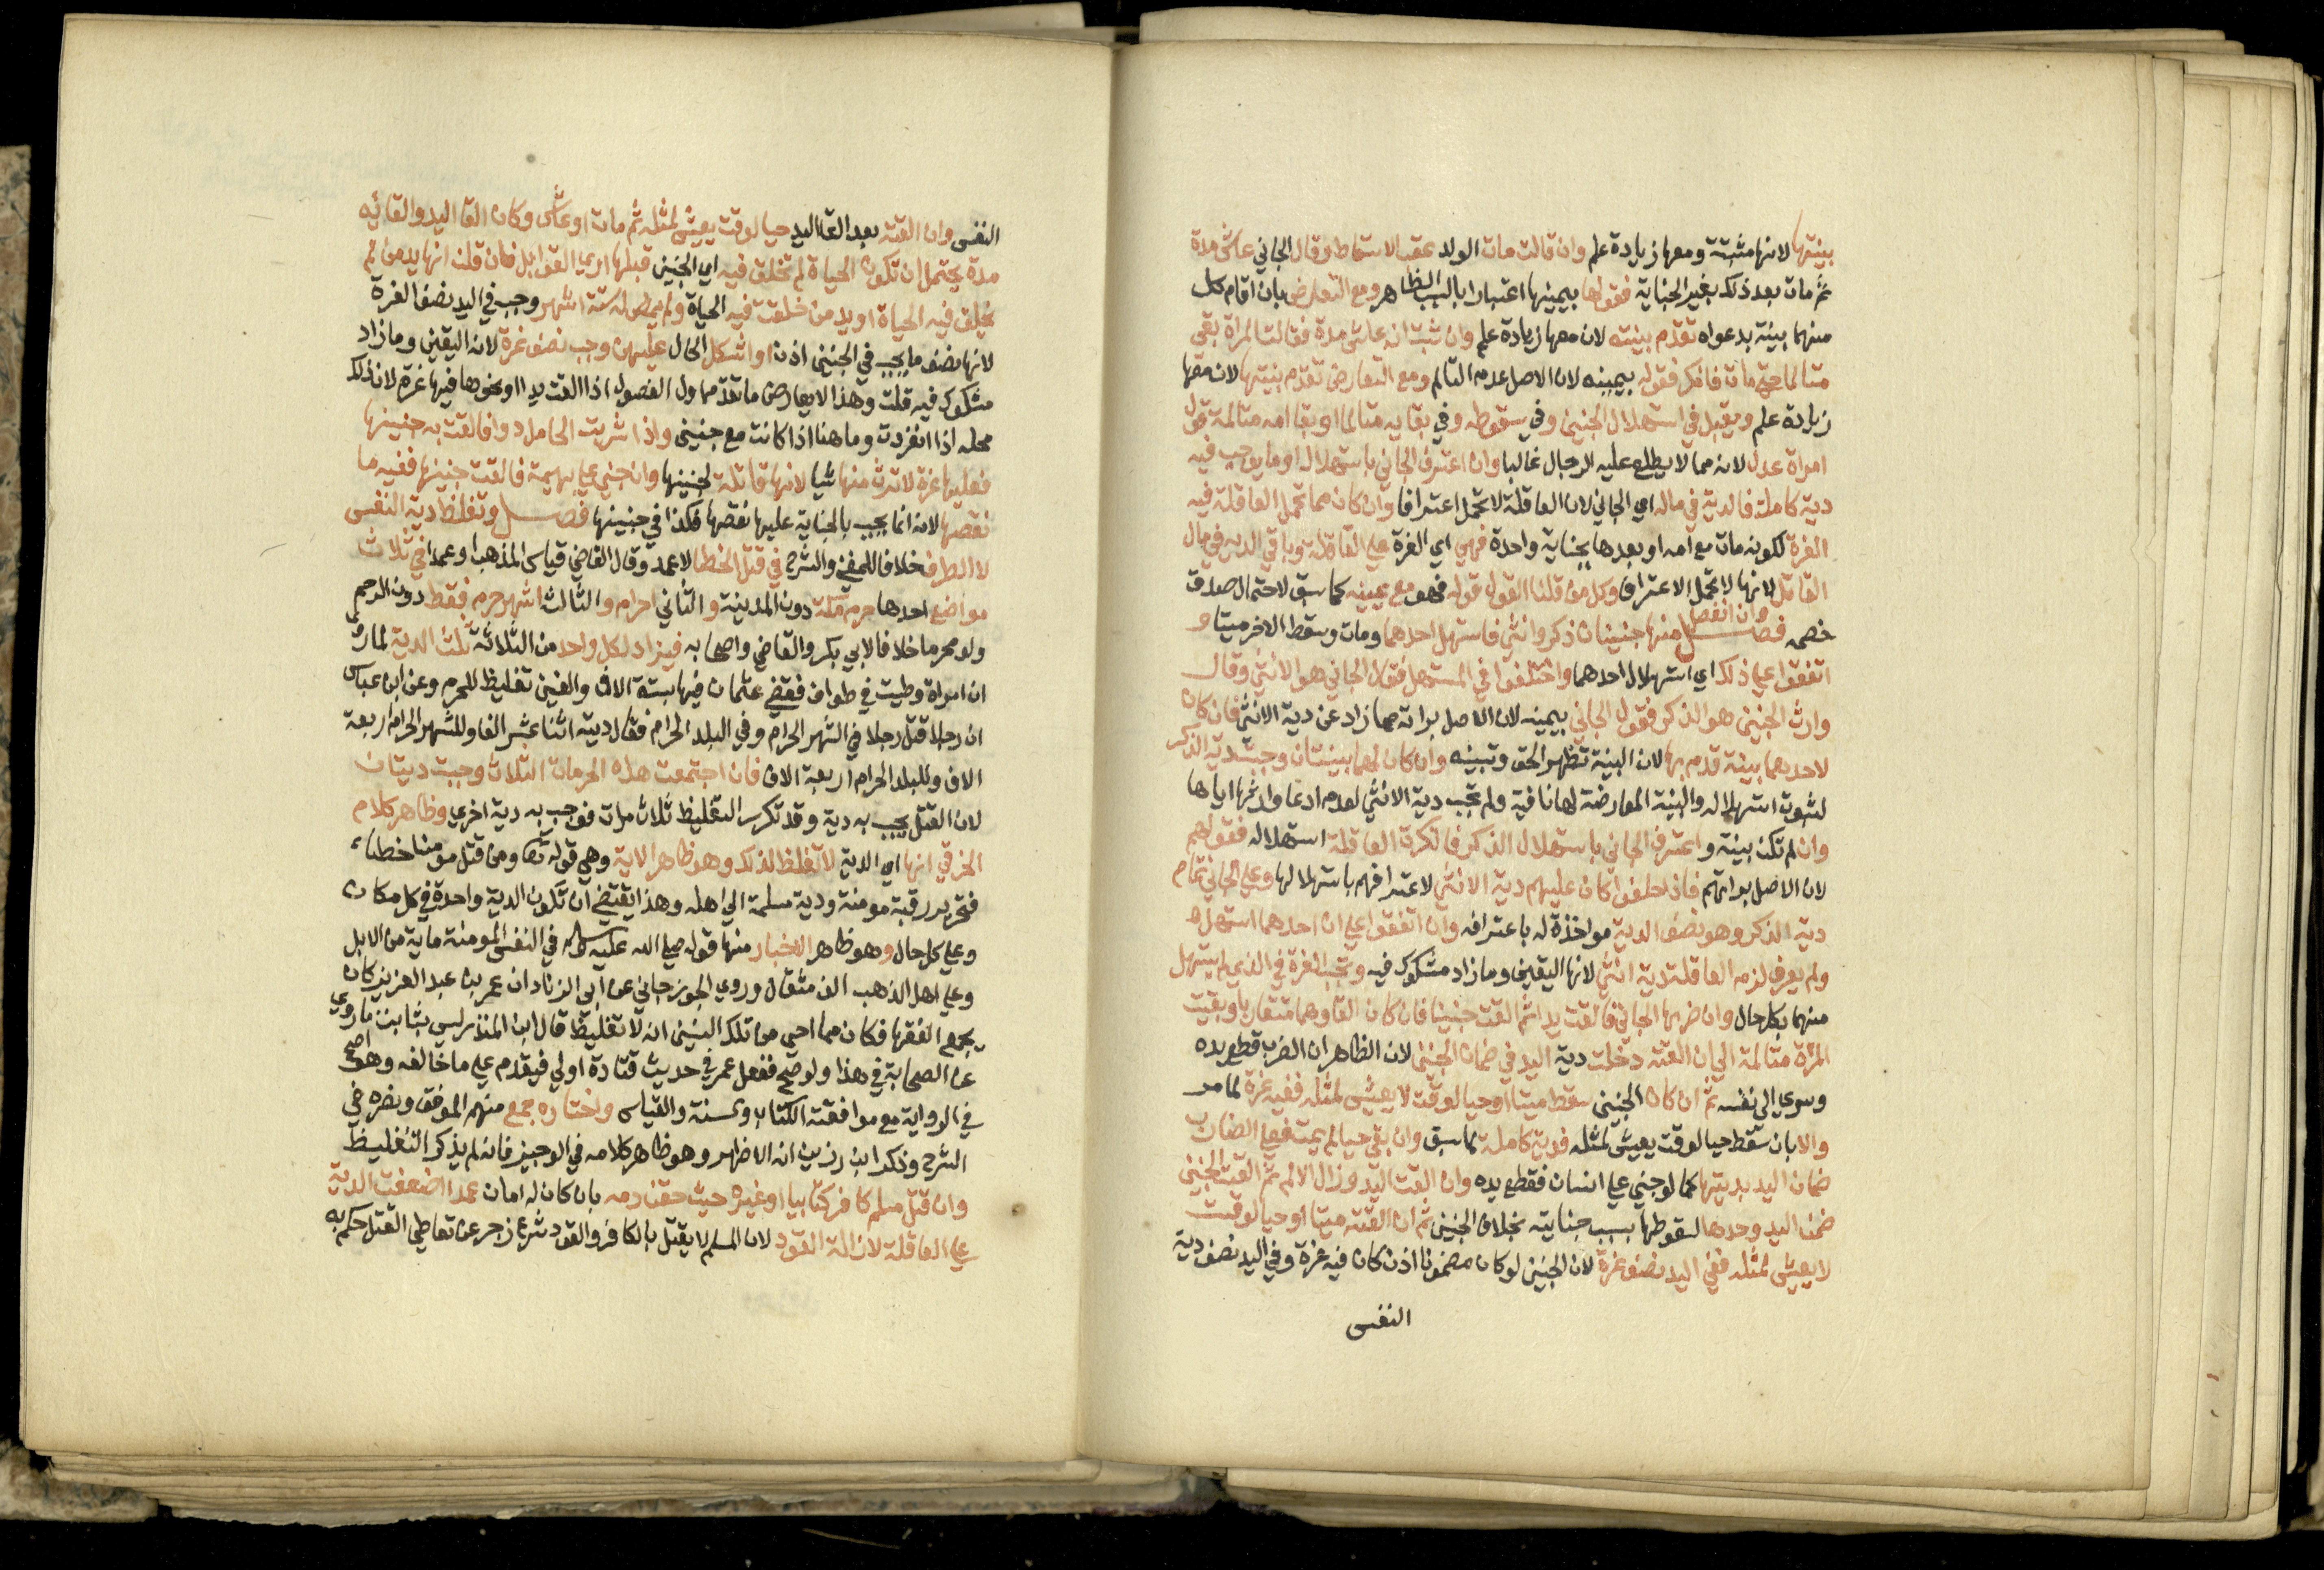 بينتها لانها مثبتة ومعها زيادة علم وان قالت مات الولد عقب الاسقاط وقال الجاني عاش مدة
ثم مات بعد ذلك بغير الجناية فقولها بيمينها اعتبارا بالسبب الظاهر ومع التعارض بان اقام كل
منهما بينة بدعواه تقدم بينته لان معها زيادة علم وان ثبت انه عاش مدة فقالت المراة بقي
متالما حتى مات فانكر فقوله بيمينه لان الاصل عدم التالم ومع التعارض تقدم بينتها لان معها
زيادة علم ويقبل في استهلال الجنين وفي سقوطه وفي بقايه متالما او بقا امه متالمة قول
امراة عدل لانه مما لا يطلع عليه الرجال غالبا وان اعترف الجاني باستهلال او ما يوجب فيه
دية كاملة فالدية في ماله اي الجاني لان العاقلة لا تحمل اعترافا وان كان مما تحمل العاقلة فيه
الغرة لكونه مات مع امه او بعدها بجناية واحدة فهي اي الغرة على العاقلة وباقي الدية في مال
القاتل لانها لا تحمل الاعتراف وكل من قلنا القول قوله فهو مع يمينه كما سبق لاحتمال صدق
خصمه فصل وان انفصل منها جنينان ذكر وانثى فاستهل احدهما ومات وسقط الاخر ميتا و
اتفقوا على ذلك اي استهلال احدهما واختلفوا في المستهل فقال الجاني هو الانثى وقال
وارث الجنين هو الذكر فقول الجاني بيمينه لان الاصل براته مما زاد عن دية الانثى فان كان
لاحدهما بينة قدم بها لان البينة تظهر الحق وتبينه وان كان لهما بينتان وجبت دية الذكر
لثبوت استهلاله والبينة المعارضة لها نافية ولم تجب دية الانثى لعدم ادعا وارثها اياها
وان لم تكن بينة واعترف الجاني باستهلال الذكر فانكرت العاقلة استهلاله فقولهم
لان الاصل براتهم فاذا حلفوا كان عليهم دية الانثى لاعترافهم باستهلالها وعلى الجاني تمام
دية الذكر وهو نصف الدية مواخذة له باعترافه وان اتفقوا على ان احدهما استهل
ولم يعرف لزم العاقلة دية انثى لانها اليقين وما زاد مشكوك فيه وتجب الغرة في الذي لم يستهل
منهما بكل حال وان ضربها الجاني فالقت يدا ثم القت جنينا فان كان القاوهما متقاربا او بقيت
المراة متالمة الى ان القته دخلت دية اليد في ضمان الجنين لان الظاهر ان الضرب قطع يده
وسرى الى نفسه ثم ان كان الجنين سقط ميتا او حيا لوقت لا يعيش لمثله ففيه غرة لما مر
والا بان سقط حيا لوقت يعيش لمثله فدية كاملة لما سبق وان بقي حيا لم يمت فعلى الضارب
ضمان اليد بديتها كما لو جنى على انسان فقطع يده وان القت اليد وزال الالم ثم القت الجنين
ضمن اليد وحدها لسقوطها بسبب جنايته بخلاف الجنين ثم ان القته ميتا او حيا لوقت
لا يعيش لمثله ففي اليد نصف غرة لان الجنين لو كان مضمونا اذن كان فيه غرة وفي اليد نصف دية
النفس
النفس وان القته بعد القا اليد حيا لوقت يعيش لمثله ثم مات او عاش وكان القا اليد والقائه
مدة يحتمل ان تكون الحياة لم تخلق فيه اي الجنين قبلها اري القوابل فان قلن انها يد من لم
تخلق فيه الحياة او يد من خلقت فيه الحياة ولم يمض له ستة اشهر وجب في اليد نصف الغرة
لانها نصف ما يجب في الجنين اذن او اشكل الحال عليهن وجب نصف غرة لانه اليقين وما زاد
مشكوك فيه قلت وهذا لا يعارض ما تقدم اول الفصول اذا القت يدا او نحوها فيها غرة لان ذلك
محله اذا انفردت وما هنا اذا كانت مع جنين واذا شربت الحامل دوا فالقت به جنينها
فعليها غرة لا ترث منها شيا لانها قاتلة لجنينها وان جني على بهيمة فالقت جنينها ففيه ما
نقصها لانه انما يجب بالجناية عليها نقصها فكذا في جنينها فصل وتغلظ دية النفس
لا الطرف خلافا للمغني والشرح في قتل الخطا لا عمد وقال القاضي قياس المذهب او عمدا في ثلاث
مواضع احدها حرم مكة دون المدينة والثاني احرام والثالث اشهر حرم فقط دون الرحم
ولو محرما خلافا لابي بكر والقاضي واصحابه فيزاد لكل واحد من الثلاثة ثلث الدية لما روي
ان امراة وطيت في طواف فقضى عثمان فيها بستة الاف والفين تغليظ للحرم وعن ابن عباس
ان رجلا قتل رجلا في الشهر الحرام وفي البلد الحرام فقال ديته اثنا عشر الفا وللشهر الحرام اربعة
الاف وللبلد الحرام اربعة الاف فان اجتمعت هذه الحرمات الثلاث وجبت ديتان
لان القتل يجب به دية وقد تكرر التغليظ ثلاث مرات فوجب به دية اخرى وظاهر كلام
الخرقي انها اي الدية لا تغلظ لذلك وهو ظاهر الاية وهي قوله تعا ومن قتل مومنا خطئا
فتحرير رقبة مومنة ودية مسلمة الى اهله وهذا يقتضي ان تكون الدية واحدة في كل مكان
وعلى كل حال وهو ظاهر الاخبار منها قوله صلى الله عليه وسلم في النفس المومنة ماية من الابل
وعلى اهل الذهب الف مثقال وروي الجوزجاني عن ابي الزناد ان عمر بن عبد العزيز كان
يجمع الفقها فكان مما احيى من تلك السنن ان لا تغليظ قال ابن المنذر ليس بثابت ما روي
عن الصحابة في هذا ولو صح ففعل عمر في حديث قتادة اولى فيقدم على ما خالفه وهو اصح
في الرواية مع موافقته الكتاب والسنة والقياس واختاره جمع منهم الموفق ونصره في
الشرح وذكر ابن رزين انه الاظهر وهو ظاهر كلامه في الوجيز فانه لم يذكر التغليظ
وان قتل مسلم كافر كتابيا او غيره حيث حقن دمه بان كان له امان عمدا اضعفت الدية
على العاقلة لازالة القود لان المسلم لا يقتل بالكافر والقود شرع زجر عن تعاطي القتل حكم به